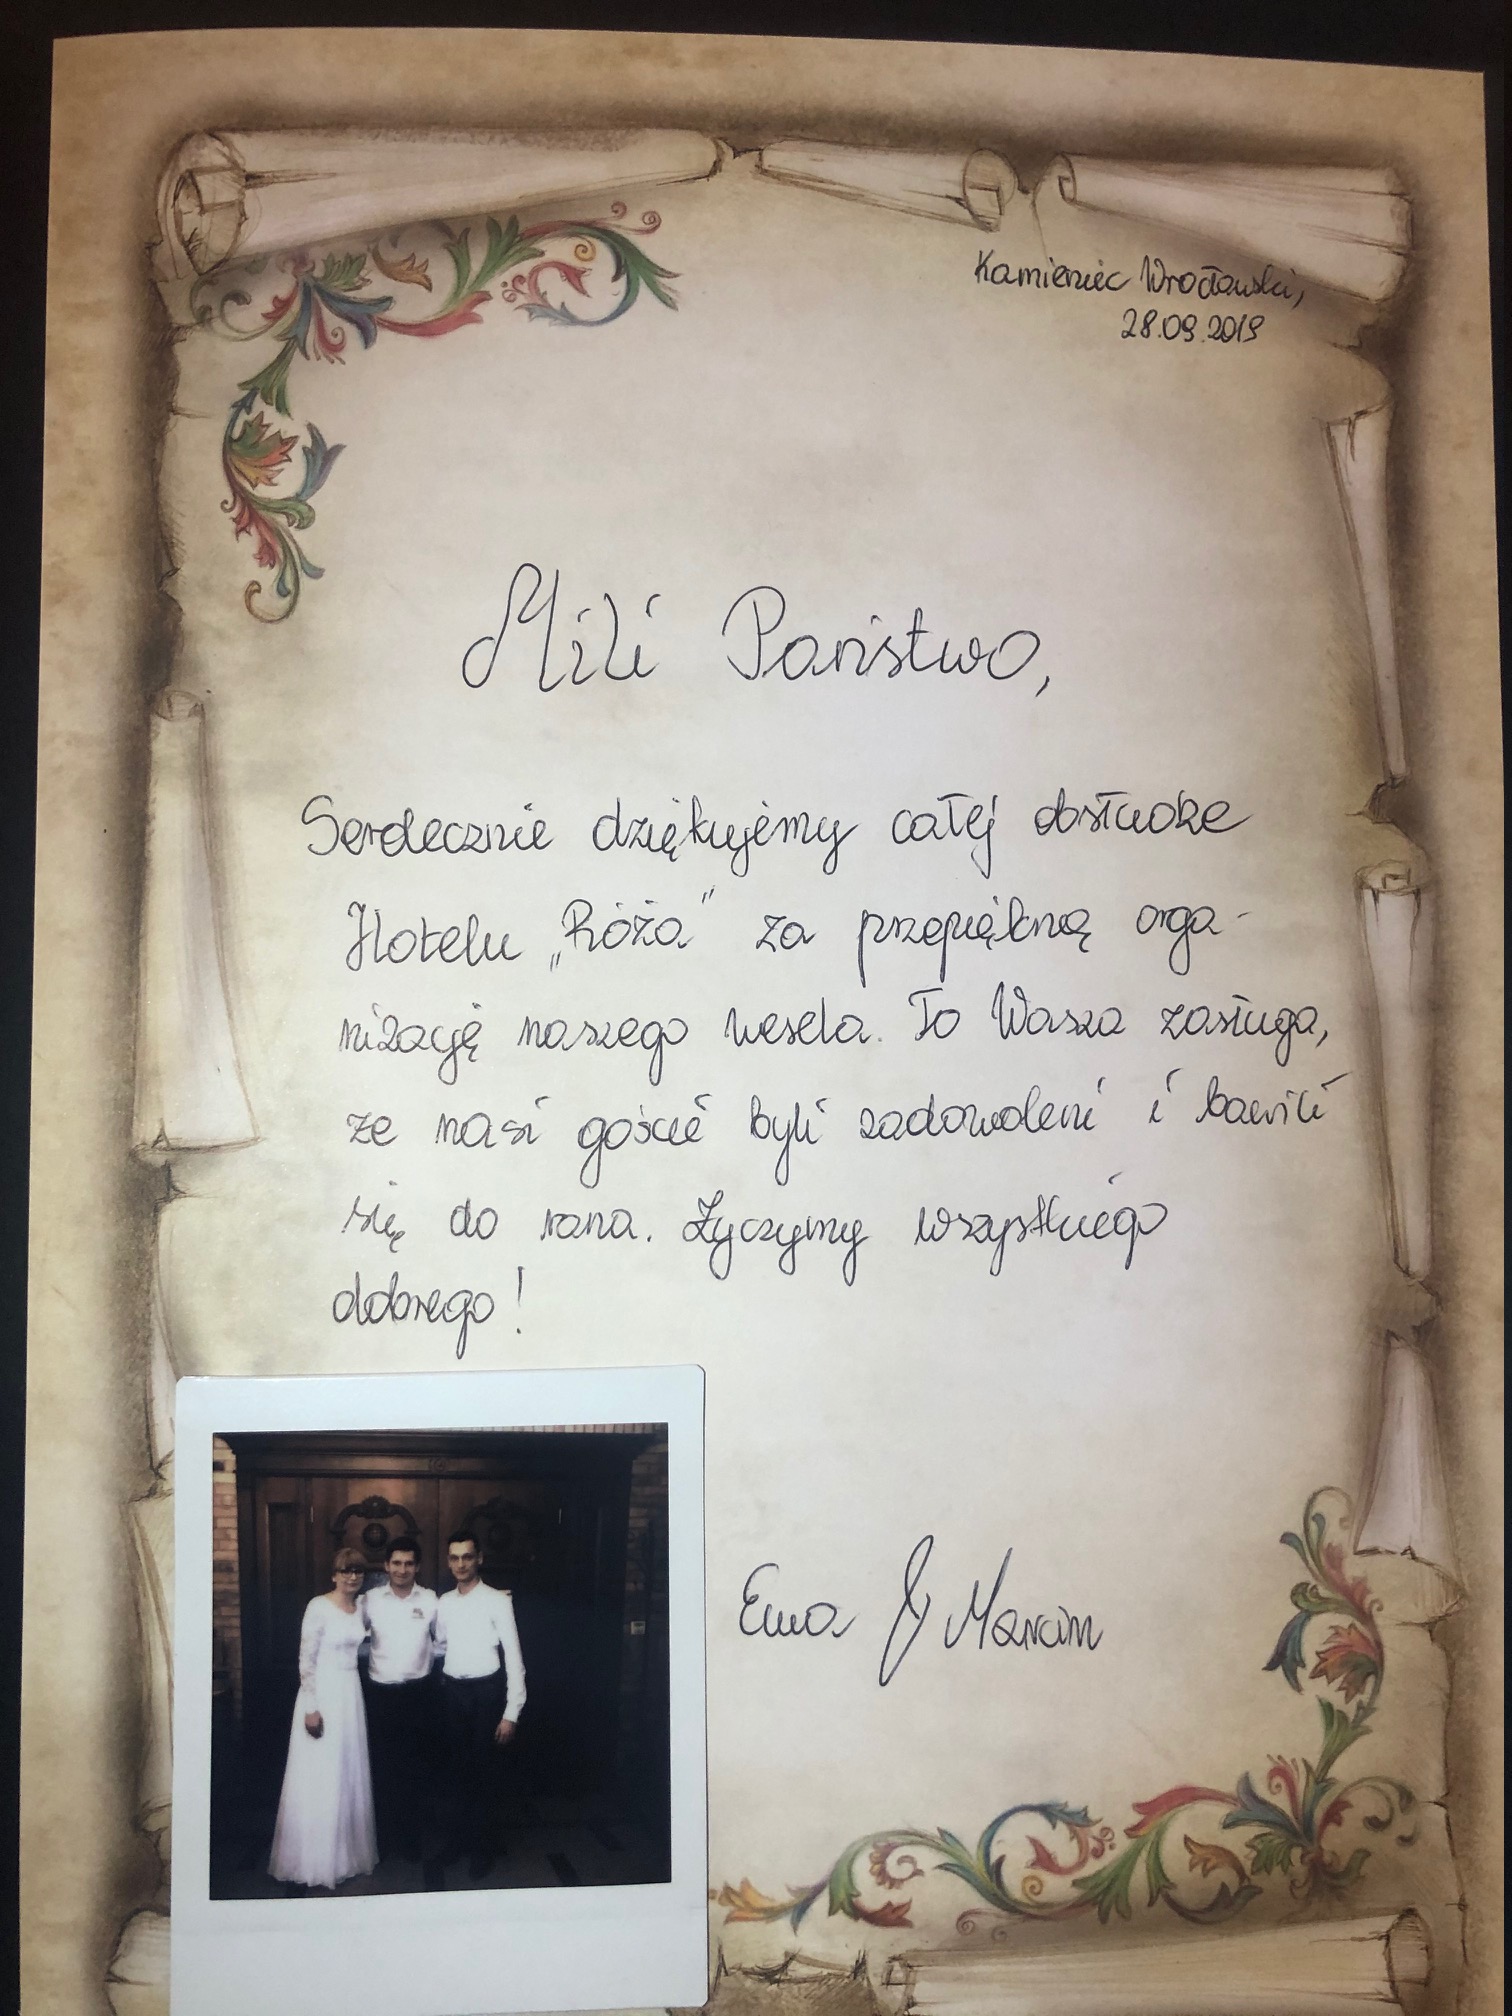 Kamieniec Wrocławski,
28.09.2019
Mili Państwo,
Serdecznie dziękujemy całej obsłudze
Hotelu „Róża” za przepiękną orga-
nizację naszego wesela. To Wasza zasługa,
że nasi goście byli zadowoleni i bawili
się do rana. Życzymy wszystkiego
dobrego!
Ewa & Marcin